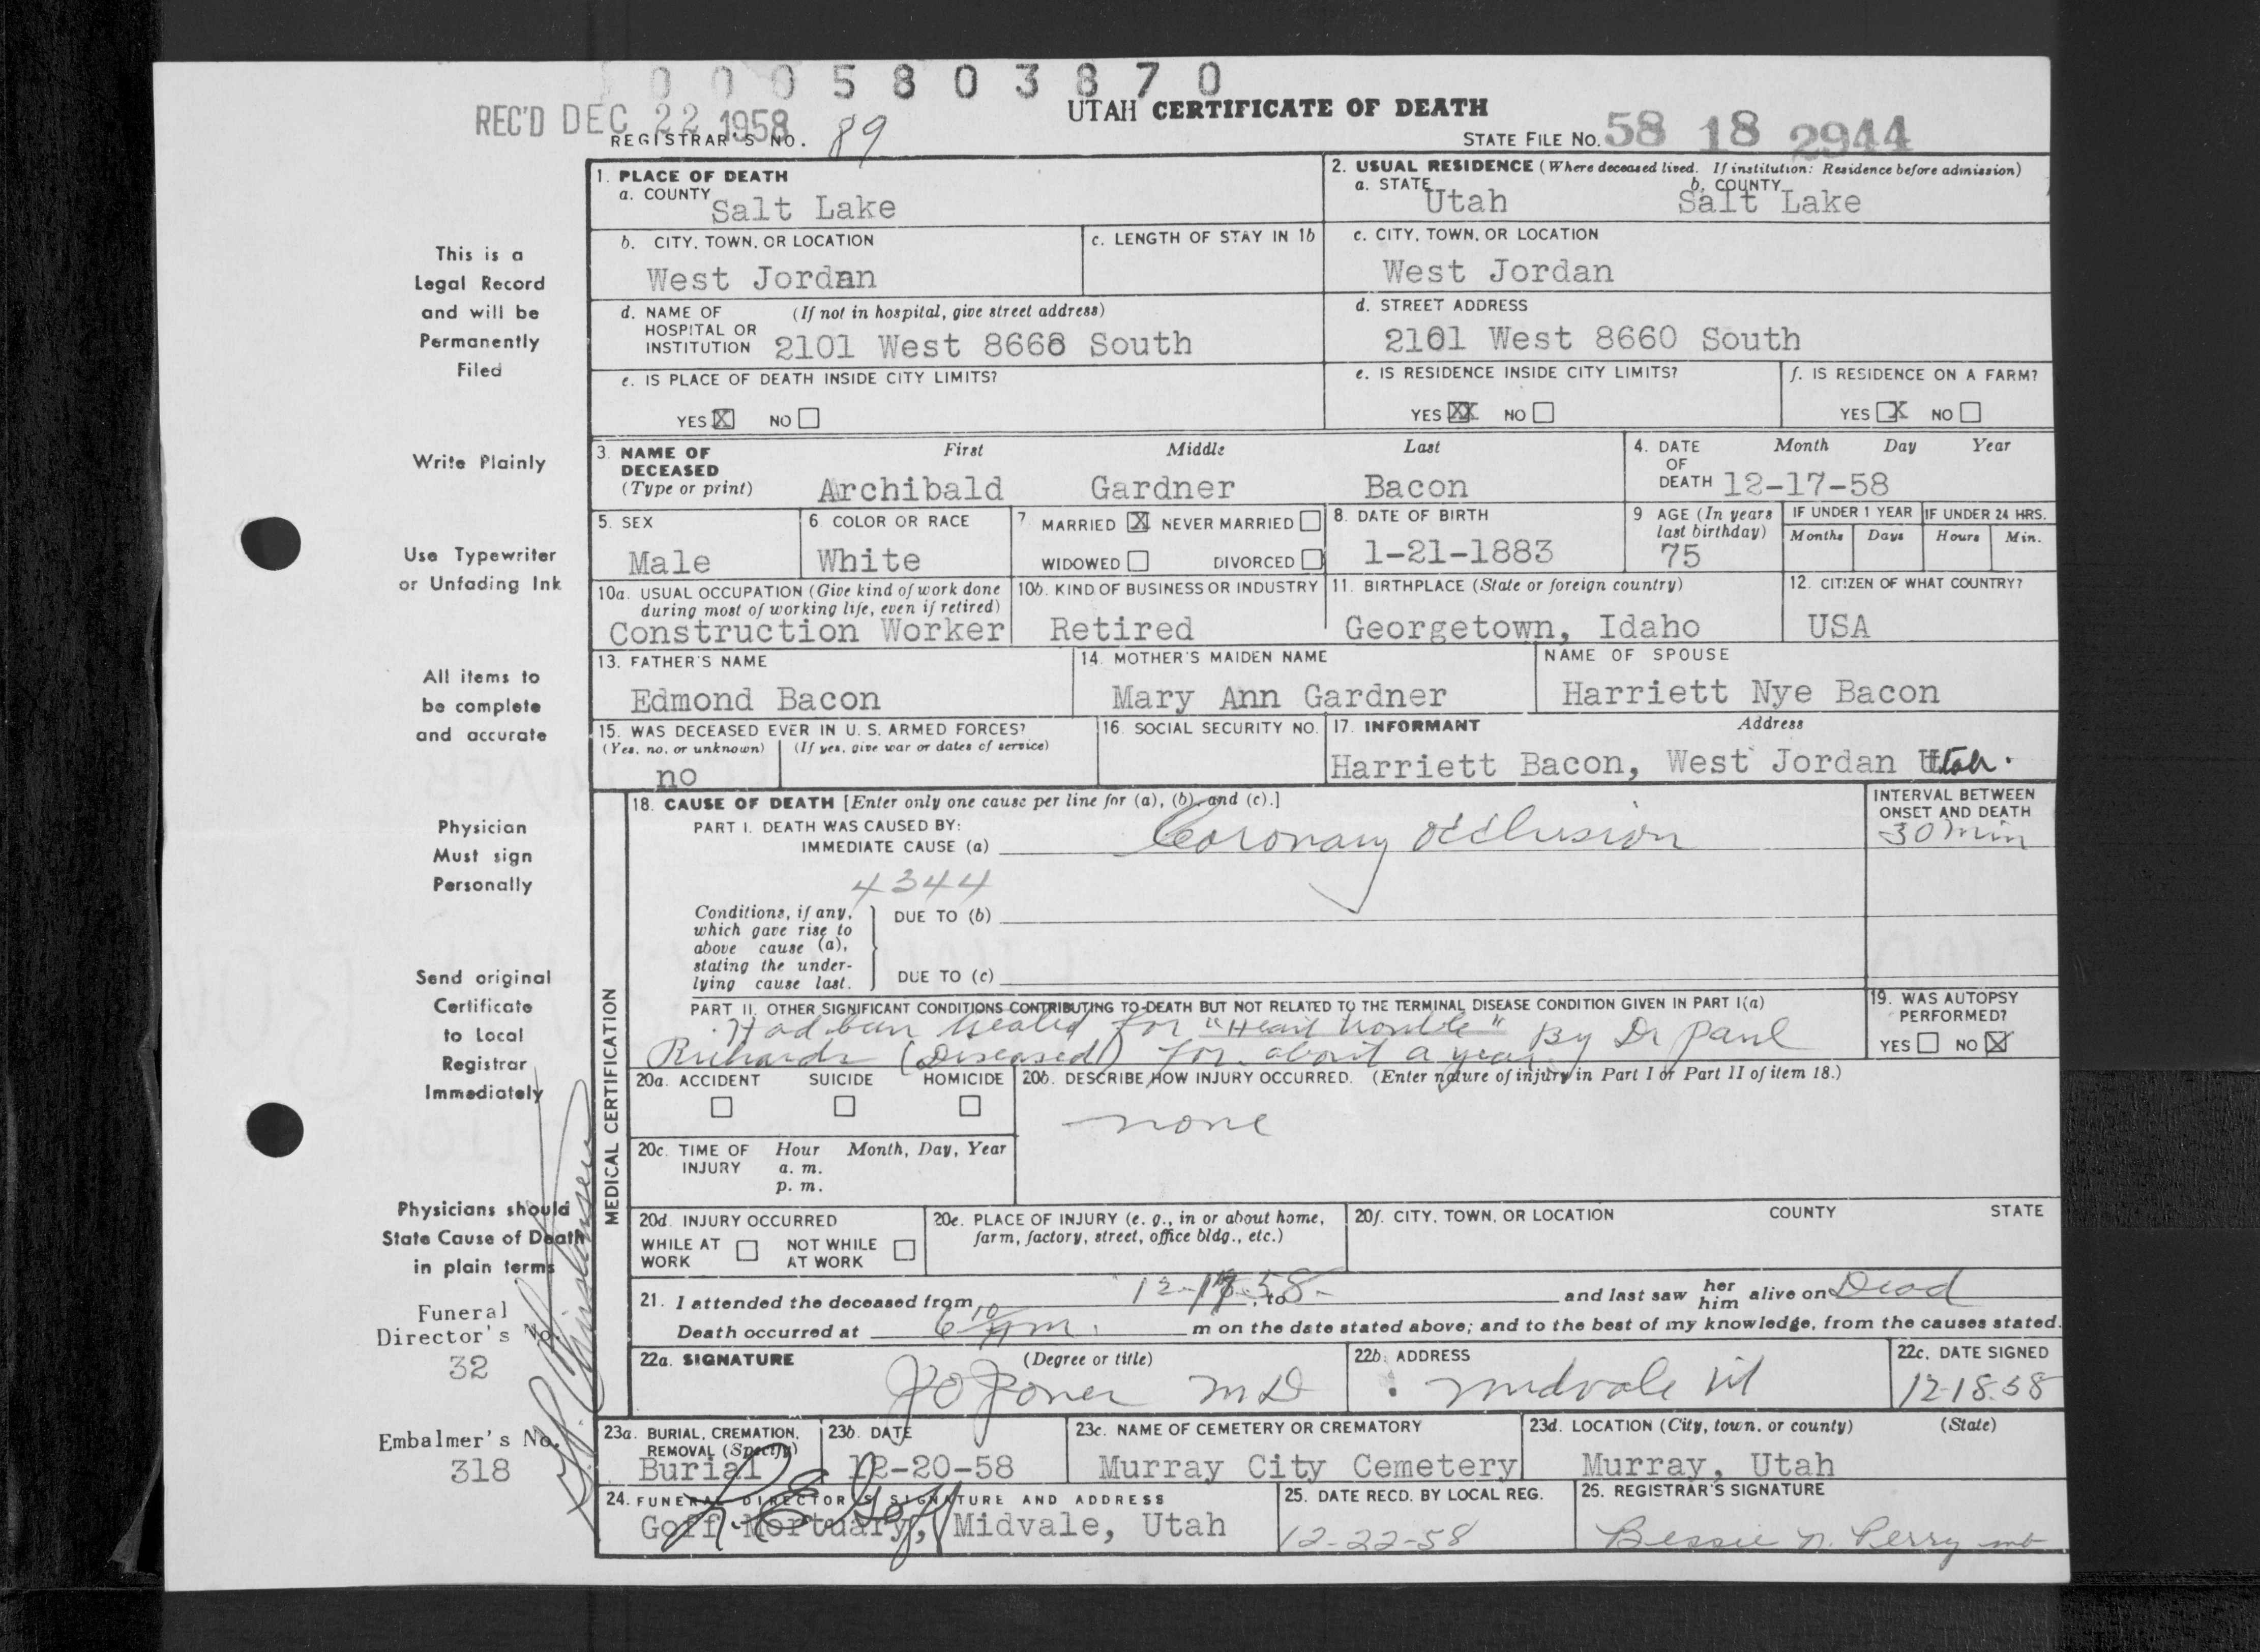 0 0 0 5 8 0 3 8 7 0
REC'D DEC 22 1958
UTAH CERTIFICATE OF DEATH
REGISTRAR'S NO. 89
STATE FILE NO. 58 18 2944
This is a
Legal Record
and will be
Permanently
Filed
Write Plainly
Use Typewriter
or Unfading Ink
All items to
be complete
and accurate
Physician
Must sign
Personally
Send original
Certificate
to Local
Registrar
Immediately
Physicians should
State Cause of Death
in plain terms
Funeral
Director's No.
32
Embalmer's No.
318
1. PLACE OF DEATH
a. COUNTY Salt Lake
2. USUAL RESIDENCE (Where deceased lived. If institution: Residence before admission)
a. STATE Utah b. COUNTY Salt Lake
b. CITY, TOWN, OR LOCATION West Jordan
c. LENGTH OF STAY IN 1b
c. CITY, TOWN, OR LOCATION West Jordan
d. NAME OF HOSPITAL OR INSTITUTION (If not in hospital, give street address)
2101 West 8660 South
d. STREET ADDRESS
2101 West 8660 South
e. IS PLACE OF DEATH INSIDE CITY LIMITS?
YES X NO
e. IS RESIDENCE INSIDE CITY LIMITS?
YES XX NO
f. IS RESIDENCE ON A FARM?
YES X NO
3. NAME OF DECEASED (Type or print)
First Middle Last
Archibald Gardner Bacon
4. DATE OF DEATH Month Day Year
12-17-58
5. SEX
Male
6 COLOR OR RACE
White
7 MARRIED X NEVER MARRIED
WIDOWED DIVORCED
8. DATE OF BIRTH
1-21-1883
9 AGE (In years last birthday)
75
IF UNDER 1 YEAR
Months Days
IF UNDER 24 HRS.
Hours Min.
10a. USUAL OCCUPATION (Give kind of work done during most of working life, even if retired)
Construction Worker
10b. KIND OF BUSINESS OR INDUSTRY
Retired
11. BIRTHPLACE (State or foreign country)
Georgetown, Idaho
12. CITIZEN OF WHAT COUNTRY?
USA
13. FATHER'S NAME
Edmond Bacon
14. MOTHER'S MAIDEN NAME
Mary Ann Gardner
NAME OF SPOUSE
Harriett Nye Bacon
15. WAS DECEASED EVER IN U. S. ARMED FORCES?
(Yes, no, or unknown) (If yes, give war or dates of service)
no
16. SOCIAL SECURITY NO.
17. INFORMANT Address
Harriett Bacon, West Jordan Utah.
MEDICAL CERTIFICATION
18. CAUSE OF DEATH [Enter only one cause per line for (a), (b), and (c).]
PART I. DEATH WAS CAUSED BY:
IMMEDIATE CAUSE (a) Coronary Occlusion
INTERVAL BETWEEN ONSET AND DEATH
30 min
4344
Conditions, if any, which gave rise to above cause (a), stating the underlying cause last.
DUE TO (b)
DUE TO (c)
PART II. OTHER SIGNIFICANT CONDITIONS CONTRIBUTING TO DEATH BUT NOT RELATED TO THE TERMINAL DISEASE CONDITION GIVEN IN PART I(a)
Had been treated for "Heart trouble" By Dr Paul
Richards (Diseased) for about a year
19. WAS AUTOPSY PERFORMED?
YES NO X
20a. ACCIDENT SUICIDE HOMICIDE
20b. DESCRIBE HOW INJURY OCCURRED. (Enter nature of injury in Part I or Part II of item 18.)
none
20c. TIME OF INJURY Hour Month, Day, Year
a. m.
p. m.
20d. INJURY OCCURRED
WHILE AT WORK NOT WHILE AT WORK
20e. PLACE OF INJURY (e. g., in or about home, farm, factory, street, office bldg., etc.)
20f. CITY, TOWN, OR LOCATION COUNTY STATE
21. I attended the deceased from 12-17-58- , to and last saw her him alive on Dead
Death occurred at 6 10 m on the date stated above; and to the best of my knowledge, from the causes stated.
22a. SIGNATURE (Degree or title)
J O Jones MD
22b. ADDRESS
Midvale Ut
22c. DATE SIGNED
12-18-58
23a. BURIAL, CREMATION, REMOVAL (Specify)
Burial
23b. DATE
12-20-58
23c. NAME OF CEMETERY OR CREMATORY
Murray City Cemetery
23d. LOCATION (City, town, or county) (State)
Murray, Utah
24. FUNERAL DIRECTOR'S SIGNATURE AND ADDRESS
Goff Mortuary, Midvale, Utah
25. DATE RECD. BY LOCAL REG.
12-22-58
25. REGISTRAR'S SIGNATURE
Bessie N. Perry mb